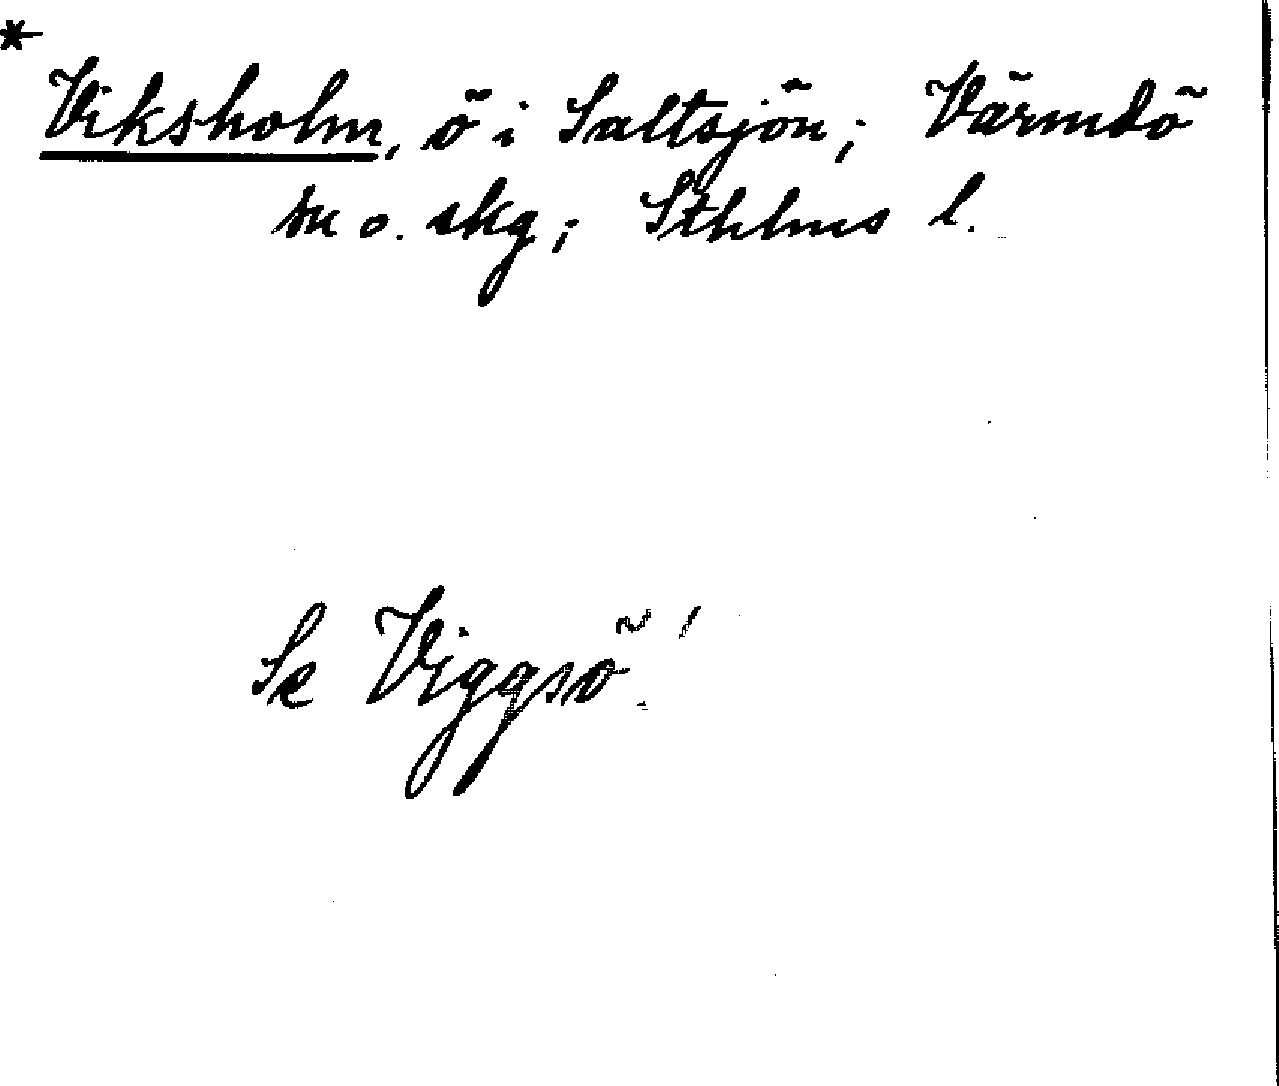 *
Viksholm, ö i Saltsjön; Värmdö
sn o. skg; Sthlms l.
Se Viggsö!